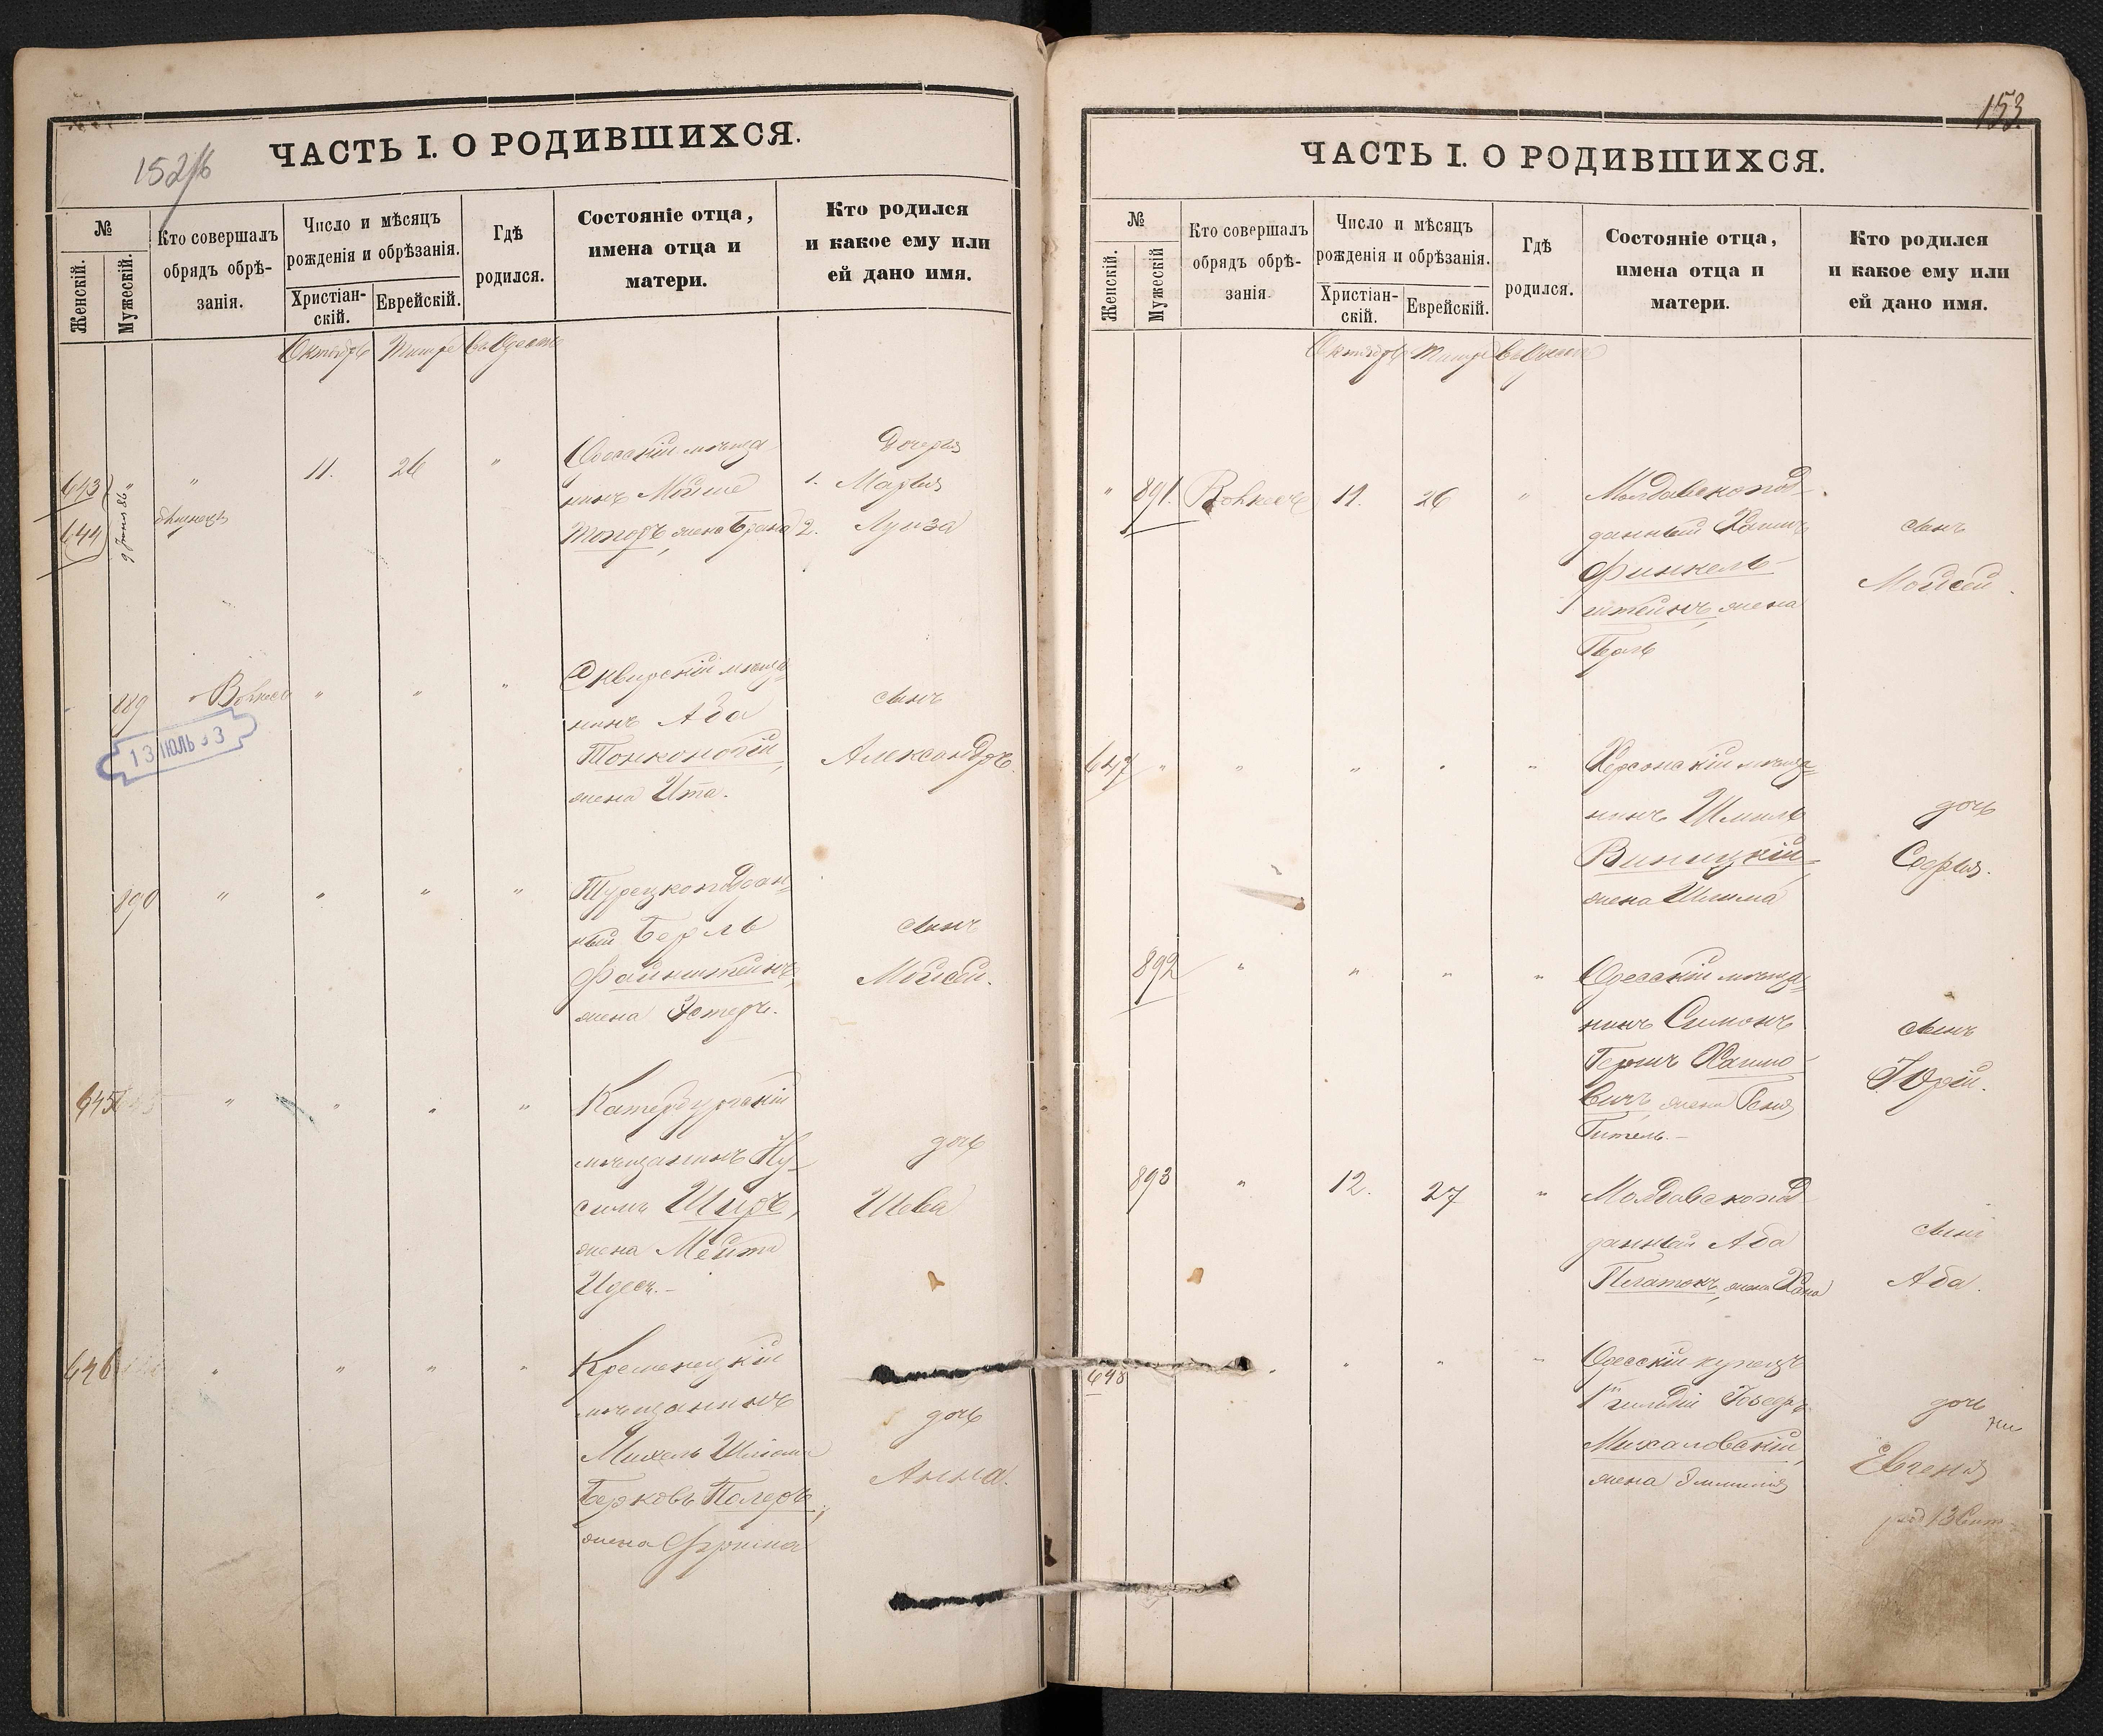 152/б
ЧАСТЬ I. О РОДИВШИХСЯ.
№
Женскій.
Мужескій.
Кто совершалъ
обрядъ обрѣ-
занія.
Число и мѣсяцъ
рожденія и обрѣзанія.
Христіан-
скій.
Еврейскій.
Гдѣ
родился.
Состояніе отца,
имена отца и
матери.
Кто родился
и какое ему или
ей дано имя.
Октябрь Тишре въ Одессѣ
643 " " 11. 26 "
644
Одесскій мѣща
нинъ Мойше
жена
Дочерья
1. Марья
2. Луиза
889 " " "
13 ІЮЛЬ
Сквирскій мѣща
нинъ Аба
Тонконогій,
жена Ита.
сынъ
Александръ.
890 " " " "
Турецкоподдан=
ный Берль
Файнштейнъ,
жена Эстеръ.
сынъ
Мойсей.
645 " " " "
Катербургскій
мѣщанинъ Ну-
симъ Широ,
жена Мейта
Идесъ.-
дочь
Шева
646 " " " "
Кременецкій
мѣщанинъ
Михель
Берковъ Палеръ,
жена Фрима
дочь
Анна.
153.
ЧАСТЬ I. О РОДИВШИХСЯ.
№
Женскій.
Мужескій
Кто совершалъ
обрядъ обрѣ-
занія.
Число и мѣсяцъ
рожденія и обрѣзанія.
Христіан-
скій.
Еврейскій.
Гдѣ
родился.
Состояніе отца,
имена отца и
матери.
Кто родился
и какое ему или
ей дано имя.
Октябрь Тишре въ Одессѣ
" 891. 11. 26 "
Молдавскопод-
данный Хаимъ
Финкель-
штейнъ, жена
Перль
сынъ
Мойсей.
647 " " " " "
Херсонскій мѣща=
нинъ Шмиль
Виницкій,
жена Шлима
дочь
Софья.
892 " " " "
Одесскій мѣща=
нинъ Симонъ
Гершъ Хаимо-
вичъ, жена Сеня
Гитель.-
сынъ
Юрій.
893 " 12. 27 "
Молдавскопод
данный Аба
Пегатокъ, жена Хана
сынъ
Аба.
648 " " " "
Одесскій купецъ
1й гильдіи
Михаловскій,
жена Эмилія
дочь
Евгенія